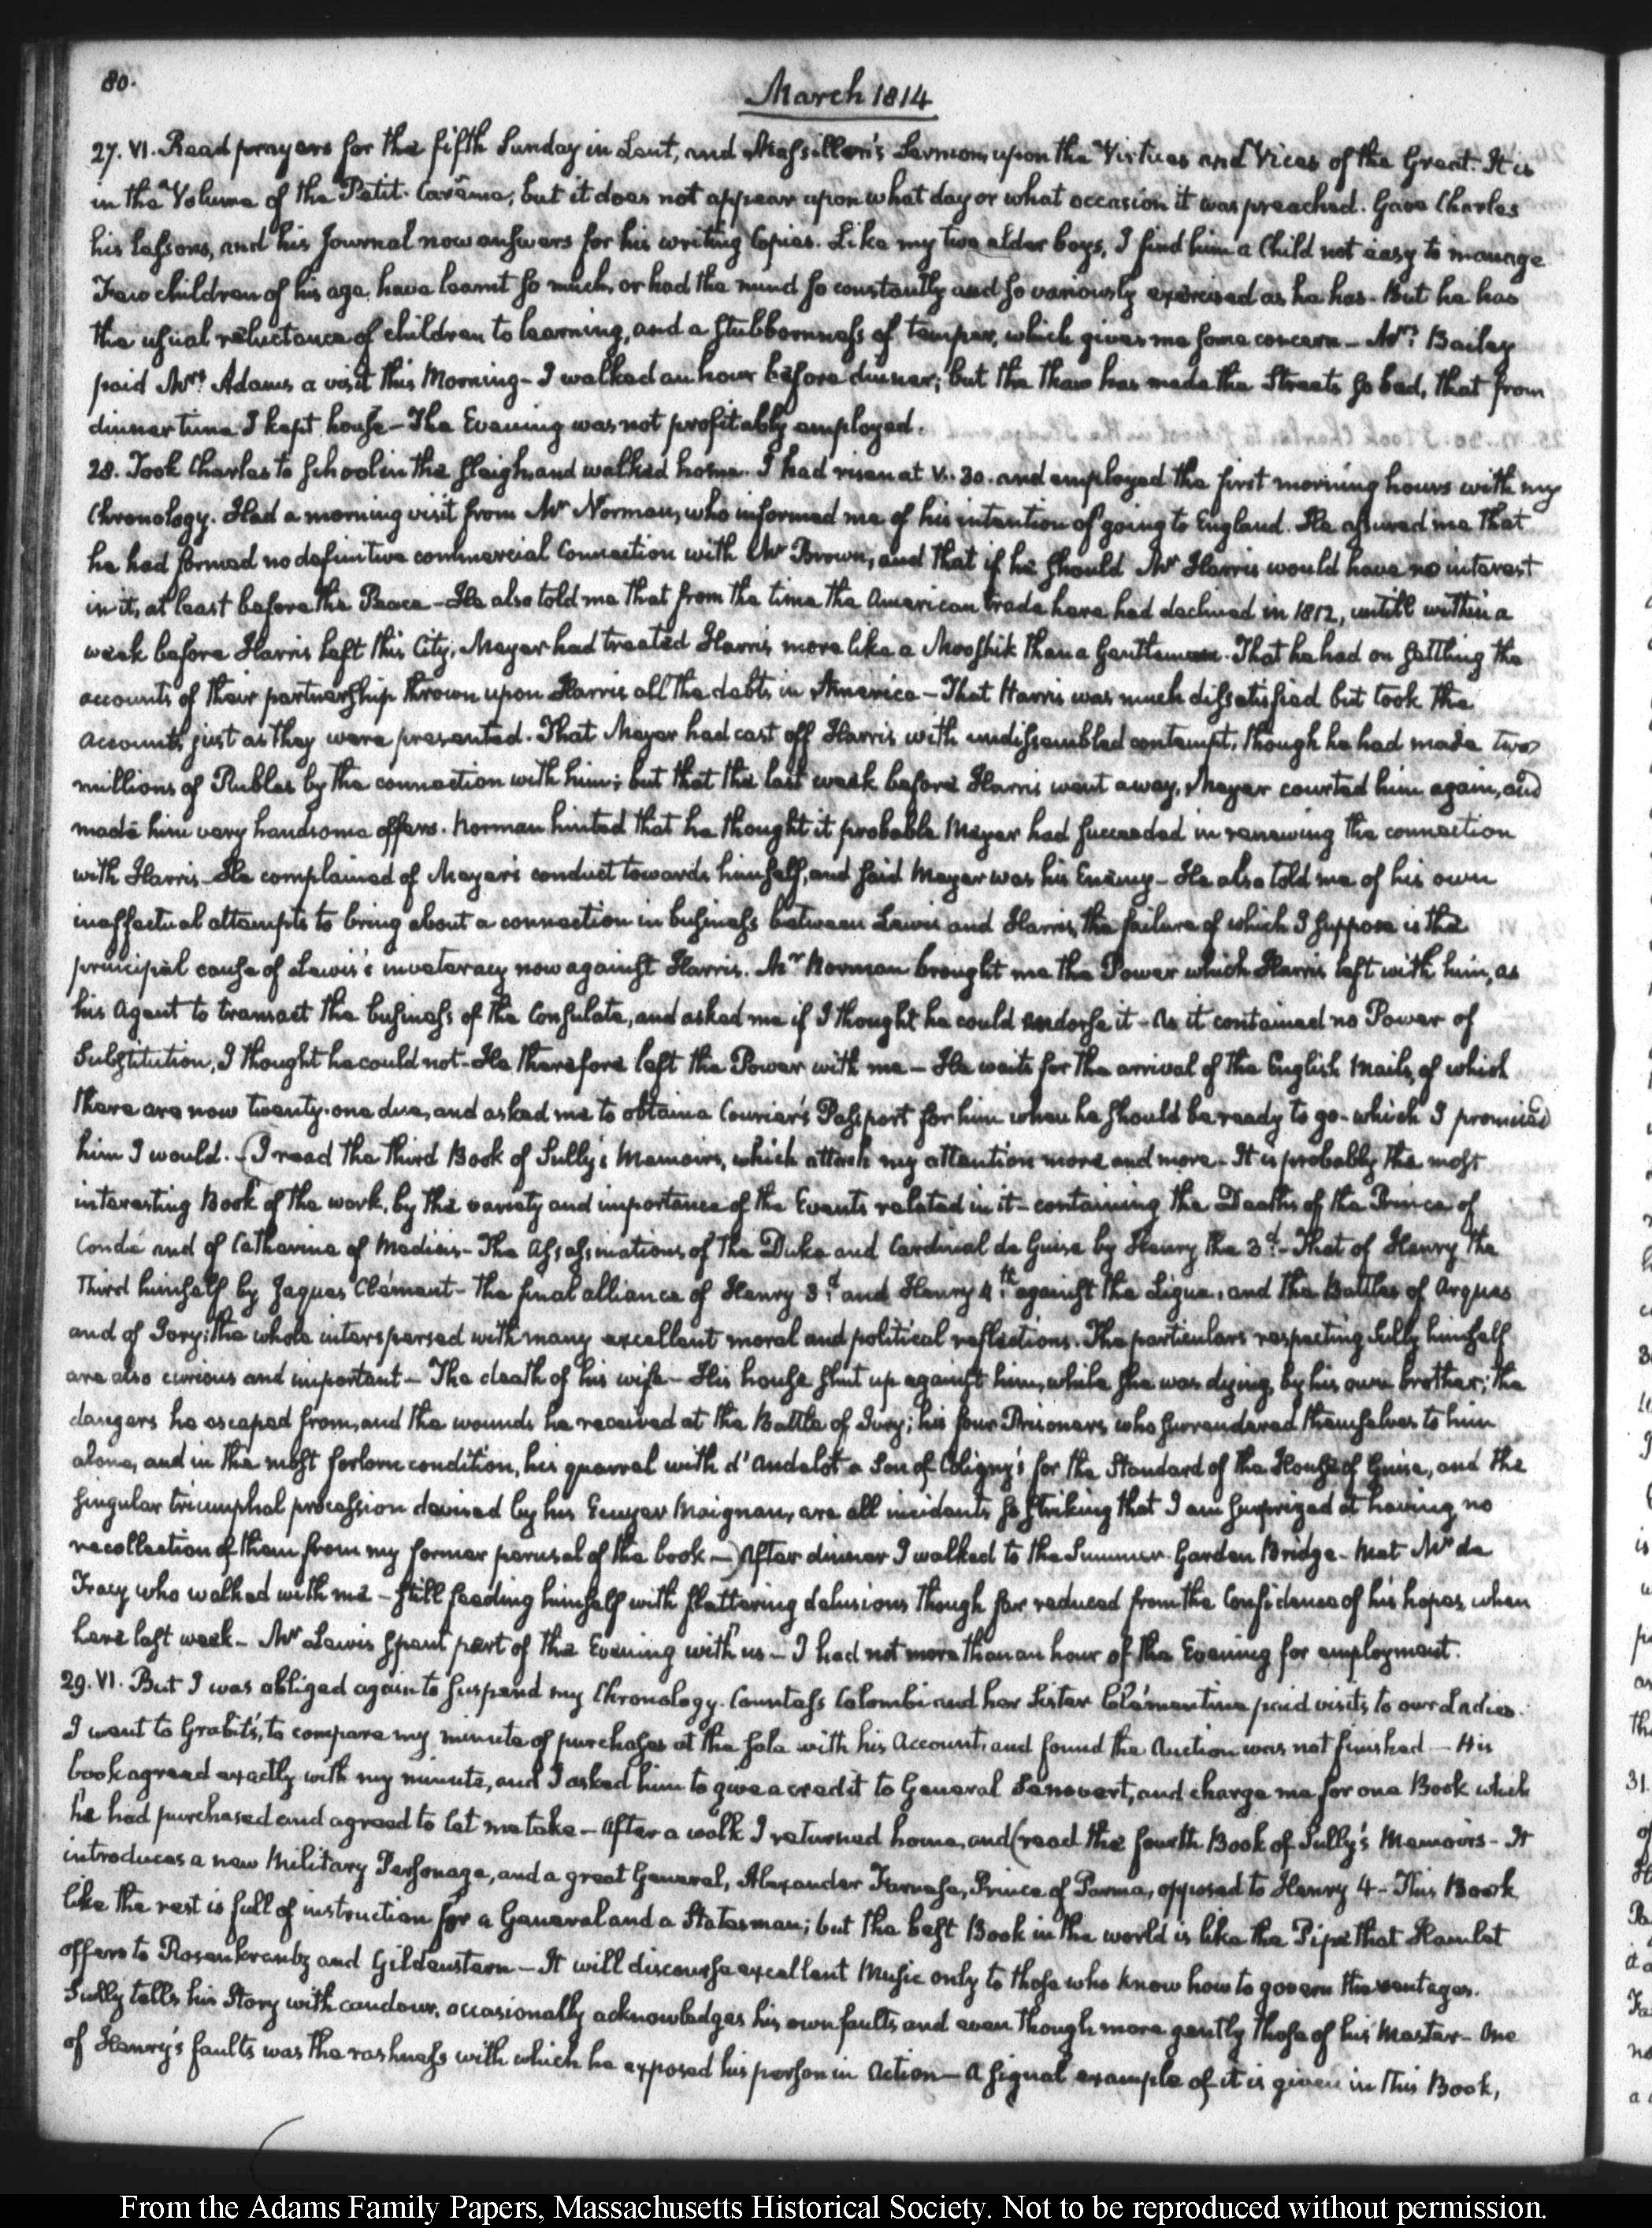 80.
March 1814
27. VI. Read prayers for the fifth Sunday in Lent, and Massillon's Sermon, upon the Virtues and Vices of the Great. It is
in the Volume of the Petit-Carême, but it does not appear upon what day or what occasion it was preached. Gave Charles
his lessons, and his Journal now answers for his writing Copies. Like my two elder boys, I find him a Child not easy to manage
Few children of his age, have learnt so much, or had the mind so constantly and so variously exercised as he has. But he has
the usual reluctance of children to learning, and a stubbornness of temper, which gives me some concern - Mrs. Bailey
paid Mrs. Adams a visit this Morning - I walked an hour before dinner; but the thaw has made the Streets so bad, that from
dinner time I kept house - The Evening was not profitably employed.
28. Took Charles to School in the Sleigh and walked home. I had risen at V. 30. and employed the first morning hours with my
Chronology. Had a morning visit from Mr Norman, who informed me of his intention of going to England. He assured me that
he had formed no definitive commercial Connection with Mr Brown, and that if he should Mr Harris would have no interest
in it, at least before the Peace - He also told me that from the time the American trade here had declined in 1812, untill within a
week before Harris left this City, Meyer had treated Harris more like a Mooshik than a Gentleman. That he had on settling the
accounts of their partnership thrown upon Harris all the debts in America - That Harris was much dissatisfied but took the
accounts just as they were presented. That Meyer had cast off Harris with undissembled contempt, though he had made two
millions of Rubles by the connection with him; but that the last week before Harris went away, Meyer courted him again, and
made him very handsome offers. Norman hinted that he thought it probable Meyer had succeeded in renewing the connection
with Harris - He complained of Meyer's conduct towards himself, and said Meyer was his Enemy - He also told me of his own
ineffectual attempts to bring about a connection in business between Lewis and Harris, the failure of which I suppose is the
principal cause of Lewis's inveteracy now against Harris. Mr Norman brought me the Power which Harris left with him, as
his Agent to transact the business of the Consulate, and asked me if I thought he could endorse it - As it contained no Power of
Substitution, I thought he could not - He therefore left the Power with me - He waits for the arrival of the English Mails, of which
there are now twenty-one due, and asked me to obtain a Courier's Passport for him when he should be ready to go - which I promised
him I would. - (I read the third Book of Sully's Memoirs, which attach my attention more and more - It is probably the most
interesting Book of the work, by the variety and importance of the Events related in it - containing the Deaths of the Prince of
Condé and of Catherine of Medicis - The Assassinations of the Duke and Cardinal de Guise by Henry the 3d. - That of Henry the
Third himself by Jaques Clément - The final alliance of Henry 3d. and Henry 4th. against the Ligue, and the Battles of Arques
and of Ivry; the whole interspersed with many excellent moral and political reflections. The particulars respecting Sully himself
are also curious and important - The death of his wife - His house shut up against him, while she was dying, by his own brother; the
dangers he escaped from, and the wounds he received at the Battle of Ivry; his four Prisoners, who surrendered themselves to him
alone, and in the most forlorn condition, his quarrel with d'Andelot a Son of Coligny's for the Standard of the House of Guise, and the
singular triumphal procession devised by his Ecuyer Maignan, are all incidents so striking that I am surprized at having no
recollection of them from my former perusal of the book -) After dinner I walked to the Summer-Garden Bridge - Met Mr de
Tracy who walked with me - Still feeding himself with flattering delusions though far reduced from the Confidence of his hopes, when
here last week - Mr Lewis spent part of the Evening with us - I had not more than an hour of the Evening for employment.
29. VI. But I was obliged again to suspend my Chronology. Countess Colombi and her Sister Clémentine paid visits to our Ladies.
I went to Grabit's, to compare my minute of purchases at the sale with his Account, and found the Auction was not finished - His
book agreed exactly with my minute, and I asked him to give a credit to General Senovert, and charge me for one Book which
he had purchased and agreed to let me take - After a walk I returned home, and (read the fourth Book of Sully's Memoirs - It
introduces a new Military Personage, and a great General, Alexander Farnese, Prince of Parma, opposed to Henry 4 - This Book
like the rest is full of instruction for a General and a Statesman; but the best Book in the world is like the Pipe that Hamlet
offers to Rosenkrantz and Gildenstern - It will discourse excellent Music only to those who know how to govern the ventages.
Sully tells his Story with candour, occasionally acknowledges his own faults, and even though more gently those of his Master - One
of Henry's faults was the rashness with which he exposed his person in Action - A signal example of it is given in this Book,
From the Adams Family Papers, Massachusetts Historical Society. Not to be reproduced without permission.